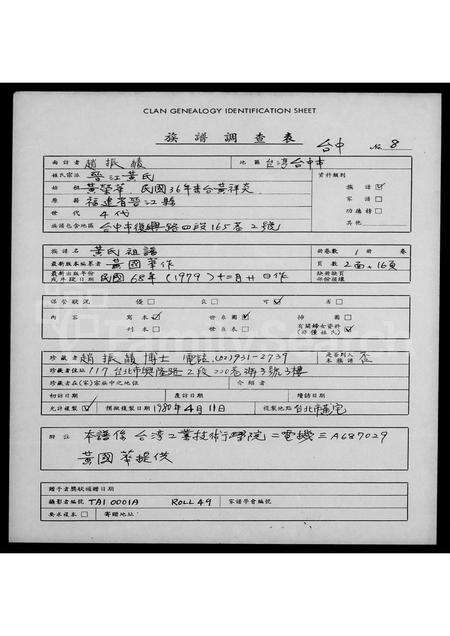 CLAN GENEALOGY IDENTIFICATION SHEET
族譜調查表 台中 No. 8
面訪者 趙振績 地區 台灣台中市
姓氏宗派 晉江黃氏 資料類別
始祖 黃榮華 民國36年來台黃祥炎 族譜 ☑
原籍 福建省晉江縣 家譜 ☐
世代 4代 功德榜 ☐
族譜包含地區 台中市復興路四段165巷2號 其他
族譜名 黃氏祖譜 冊卷數 1 冊卷
最新版本編者 黃國華作 頁數 2面 16頁
最新出版年份或年段日期 民國68年(1979)十二月廿日作 缺缺冊頁部份損壞
保管狀況 優 ☐ 良 ☐ 可 ☑ 劣 ☐
內容 寫本 ☑ 世系圖 ☑ 掃圖 ☐
刊本 ☐ 世系表 ☐ 有關婦女資料(不僅姓氏) ☑
珍藏者 趙振績博士 電話(02)931-2739 是否列入本族譜 否
珍藏者住址 117台北市興隆路2段220巷3號3樓
珍藏者在(家)家族中之地位 介紹者
初訪日期 複訪日期 續訪日期
允許複製 ☑ 預擬複製日期 1980年4月11日 複製地點 台北市
附註 本譜係台灣工業技術學院二電機三A687029
黃國華提供
贈予者獎狀頒贈日期
攝影者編號 TAI 0001A ROLL 49 家譜學會編號
要求複本 ☐ 寄贈地址